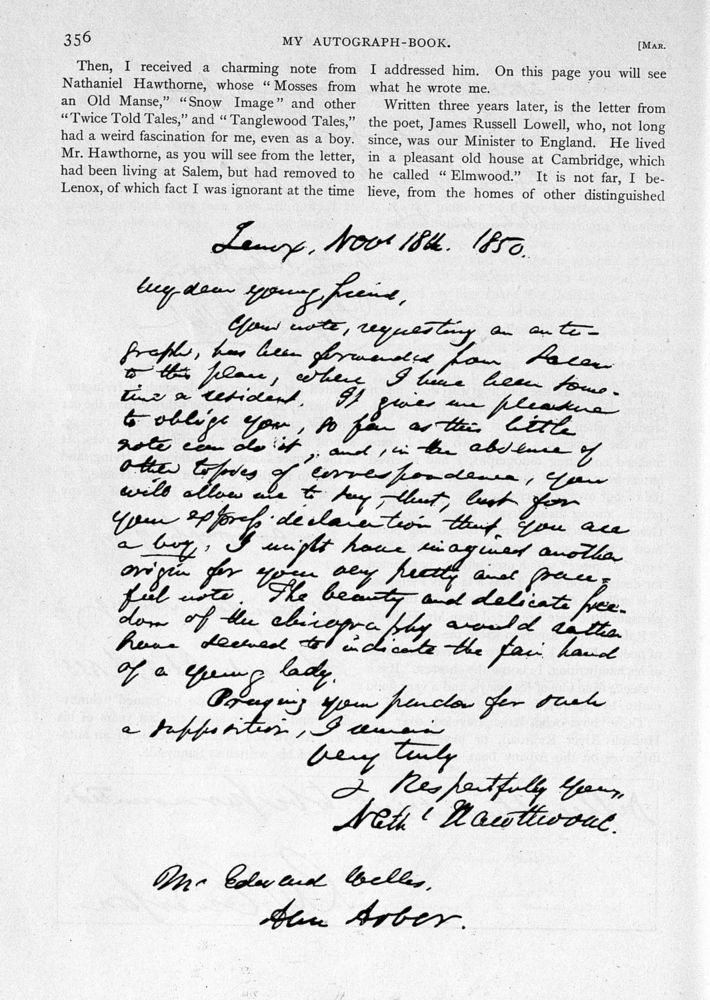 356
MY AUTOGRAPH-BOOK.
[MAR.
Then, I received a charming note from
Nathaniel Hawthorne, whose “Mosses from
an Old Manse,” “Snow Image” and other
“Twice Told Tales,” and “Tanglewood Tales,”
had a weird fascination for me, even as a boy.
Mr. Hawthorne, as you will see from the letter,
had been living at Salem, but had removed to
Lenox, of which fact I was ignorant at the time
I addressed him. On this page you will see
what he wrote me.
Written three years later, is the letter from
the poet, James Russell Lowell, who, not long
since, was our Minister to England. He lived
in a pleasant old house at Cambridge, which
he called “Elmwood.” It is not far, I be-
lieve, from the homes of other distinguished
Lenox, Novr 18th. 1850.
My dear young friend,
Your note, requesting an auto-
graph, has been forwarded from Salem
to this place, where I have been some-
time a resident. It gives me pleasure
to oblige you, so far as this little
note can do it; and, in the absence of
other topics of correspondence, you
will allow me to say, that, but for
your express declaration that you are
a boy, I might have imagined another
origin for your very pretty and grace-
ful note. The beauty and delicate free-
dom of the chirography would rather
have seemed to indicate the fair hand
of a young lady.
Praying your pardon for such
a supposition, I remain
very truly
& Respectfully Yours,
Nathl Hawthorne.
Mr Edward Welles,
Ann Arbor.